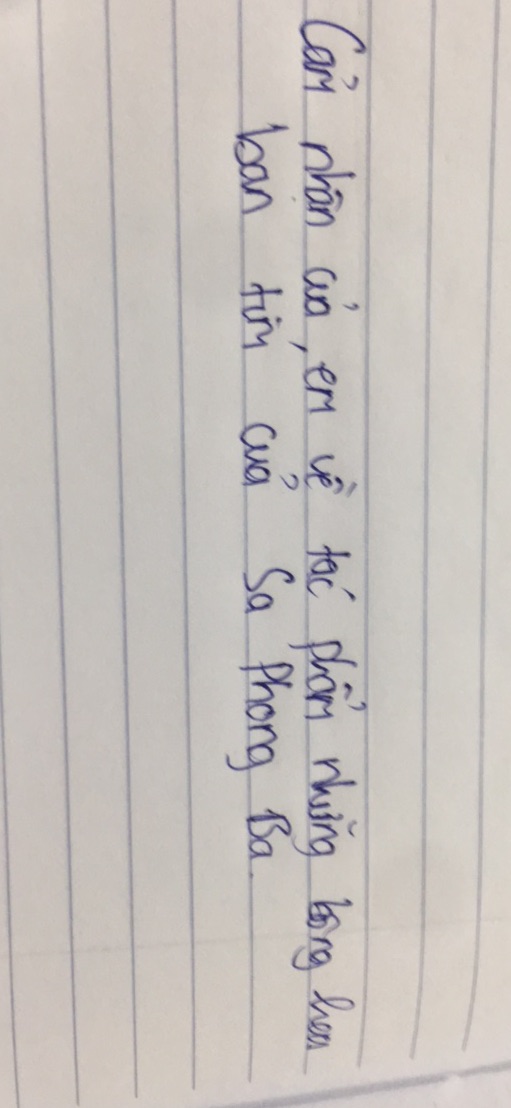 Cảm nhận của em về tác phẩm những bông hoa
ban tím của Sa Phong Ba.